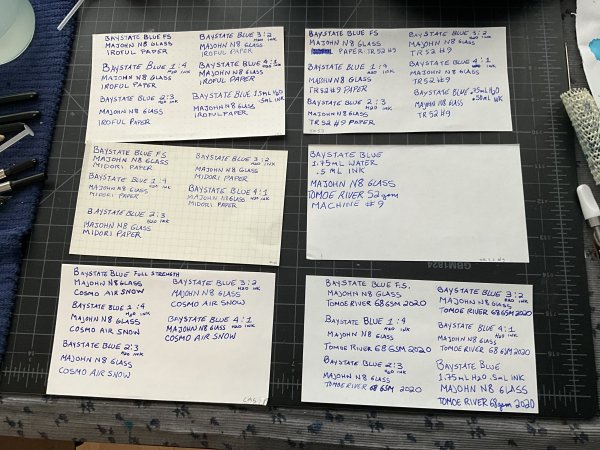 BAYSTATE BLUE FS
MAJOHN N8 GLASS
IROFUL PAPER
BAYSTATE BLUE 3:2
H2O INK
MAJOHN N8 GLASS
IROFUL PAPER
BAYSTATE BLUE 1:4
H2O INK
MAJOHN N8 GLASS
IROFUL PAPER
BAYSTATE BLUE 4:1
H2O INK
MAJOHN N8 GLASS
IROFUL PAPER
BAYSTATE BLUE 2:3
H2O INK
MAJOHN N8 GLASS
IROFUL PAPER
BAYSTATE BLUE 1.5ML H2O
.5ML INK
MAJOHN N8 GLASS
IROFUL PAPER
BAYSTATE BLUE FS
MAJOHN N8 GLASS
PAPER: TR52 #9
BAYSTATE BLUE 3:2
H2O INK
MAJOHN N8 GLASS
TR52 #9
BAYSTATE BLUE 1:4
H2O INK
MAJOHN N8 GLASS
TR52 #9 PAPER
BAYSTATE BLUE 4:1
H2O INK
MAJOHN N8 GLASS
TR52 #9
BAYSTATE BLUE 2:3
H2O INK
MAJOHN N8 GLASS
TR52 #9 PAPER
BAYSTATE BLUE
MAJOHN N8 GLASS
.5ML INK
TR52 #9
BAYSTATE BLUE FS
MAJOHN N8 GLASS
MIDORI PAPER
BAYSTATE BLUE 3:2
H2O INK
MAJOHN N8 GLASS
MIDORI PAPER
BAYSTATE BLUE 1:4
H2O INK
MAJOHN N8 GLASS
MIDORI PAPER
BAYSTATE BLUE 4:1
H2O INK
MAJOHN N8 GLASS
MIDORI PAPER
BAYSTATE BLUE 2:3
H2O INK
MAJOHN N8 GLASS
MIDORI PAPER
BAYSTATE BLUE
1.75ML WATER
.5 ML INK
MAJOHN N8 GLASS
TOMOE RIVER 52gsm
MACHINE #9
BAYSTATE BLUE FULL STRENGTH
MAJOHN N8 GLASS
COSMO AIR SNOW
BAYSTATE BLUE 3:2
H2O INK
MAJOHN N8 GLASS
COSMO AIR SNOW
BAYSTATE BLUE 1:4
H2O INK
MAJOHN N8 GLASS
COSMO AIR SNOW
BAYSTATE BLUE 4:1
H2O INK
MAJOHN N8 GLASS
COSMO AIR SNOW
BAYSTATE BLUE 2:3
H2O INK
MAJOHN N8 GLASS
COSMO AIR SNOW
BAYSTATE BLUE F.S.
MAJOHN N8 GLASS
TOMOE RIVER 68 GSM 2020
BAYSTATE BLUE 3:2
H2O INK
MAJOHN N8 GLASS
TOMOE RIVER 68 GSM 2020
BAYSTATE BLUE 1:4
H2O INK
MAJOHN N8 GLASS
TOMOE RIVER 68 GSM 2020
BAYSTATE BLUE 4:1
H2O INK
MAJOHN N8 GLASS
TOMOE RIVER 68 GSM 2020
BAYSTATE BLUE 2:3
H2O INK
MAJOHN N8 GLASS
TOMOE RIVER 68 GSM 2020
BAYSTATE BLUE
1.75ML H2O .5ML INK
MAJOHN N8 GLASS
TOMOE RIVER 68gsm 2020
GBM1824